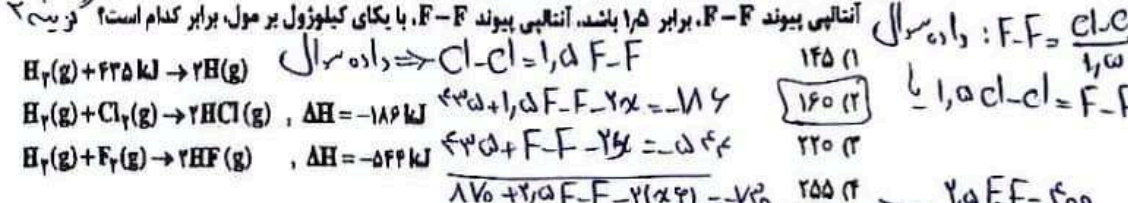 آنتالپی پیوند F-F، برابر ۱٫۵ باشد، آنتالپی پیوند F-F، با یکای کیلوژول بر مول، برابر کدام است؟ گزینه ۲
داده سوال : F-F = Cl-C / ۱,۵
یا ۱,۵ Cl-Cl = F-F
H₂(g)+۴۳۵ kJ → ۲H(g)
داده سوال ⇒ Cl-Cl = ۱,۵ F-F
۱) ۱۴۵
H₂(g)+Cl₂(g) → ۲HCl(g) , ΔH = -۱۸۶ kJ
۴۳۵+۱,۵ F-F-۲x = -۱۸۶
۲) ۱۶۰
H₂(g)+F₂(g) → ۲HF(g) , ΔH = -۵۴۴ kJ
۴۳۵+F-F-۲y = -۵۴۴
۳) ۲۲۰
۸۷۰+۲,۵ F-F-۲(x+y) = -۷۳۰
۴) ۲۵۵
۲,۵ F-F = ۴۰۰